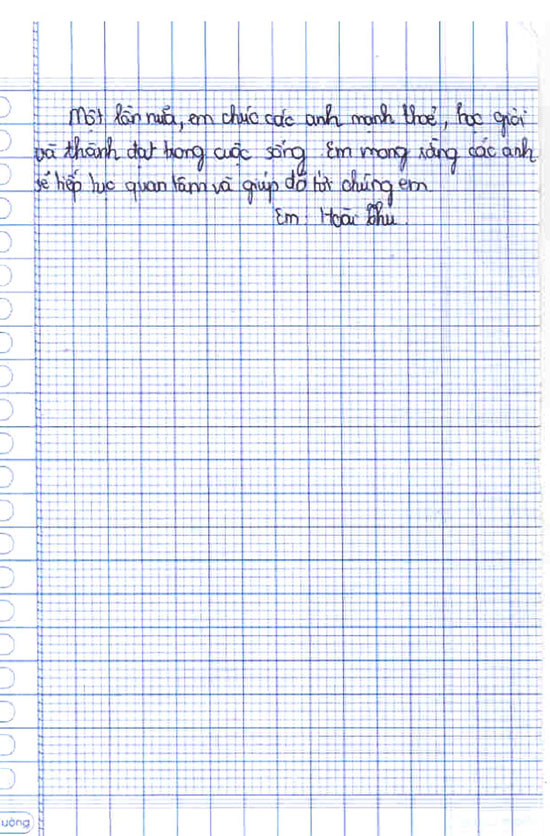 Một lần nữa, em chúc các anh mạnh khoẻ, học giỏi
và thành đạt trong cuộc sống. Em mong rằng các anh
sẽ tiếp tục quan tâm và giúp đỡ tới chúng em.
Em: Hoài Thu
ường